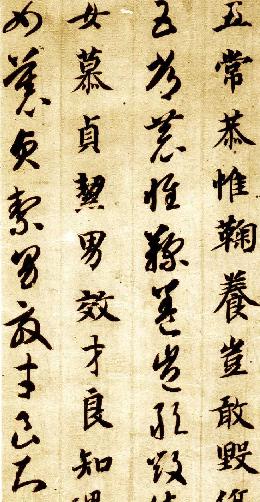 五常恭惟鞠養豈敢毀
五常恭惟鞠養豈敢毀
女慕貞絜男效才良知
女慕貞絜男效才良知